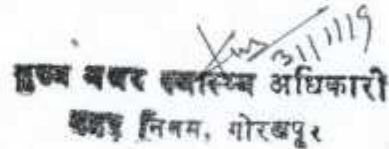 31/1/19
मुख्य नगर स्वास्थ्य अधिकारी
नगर निगम, गोरखपुर